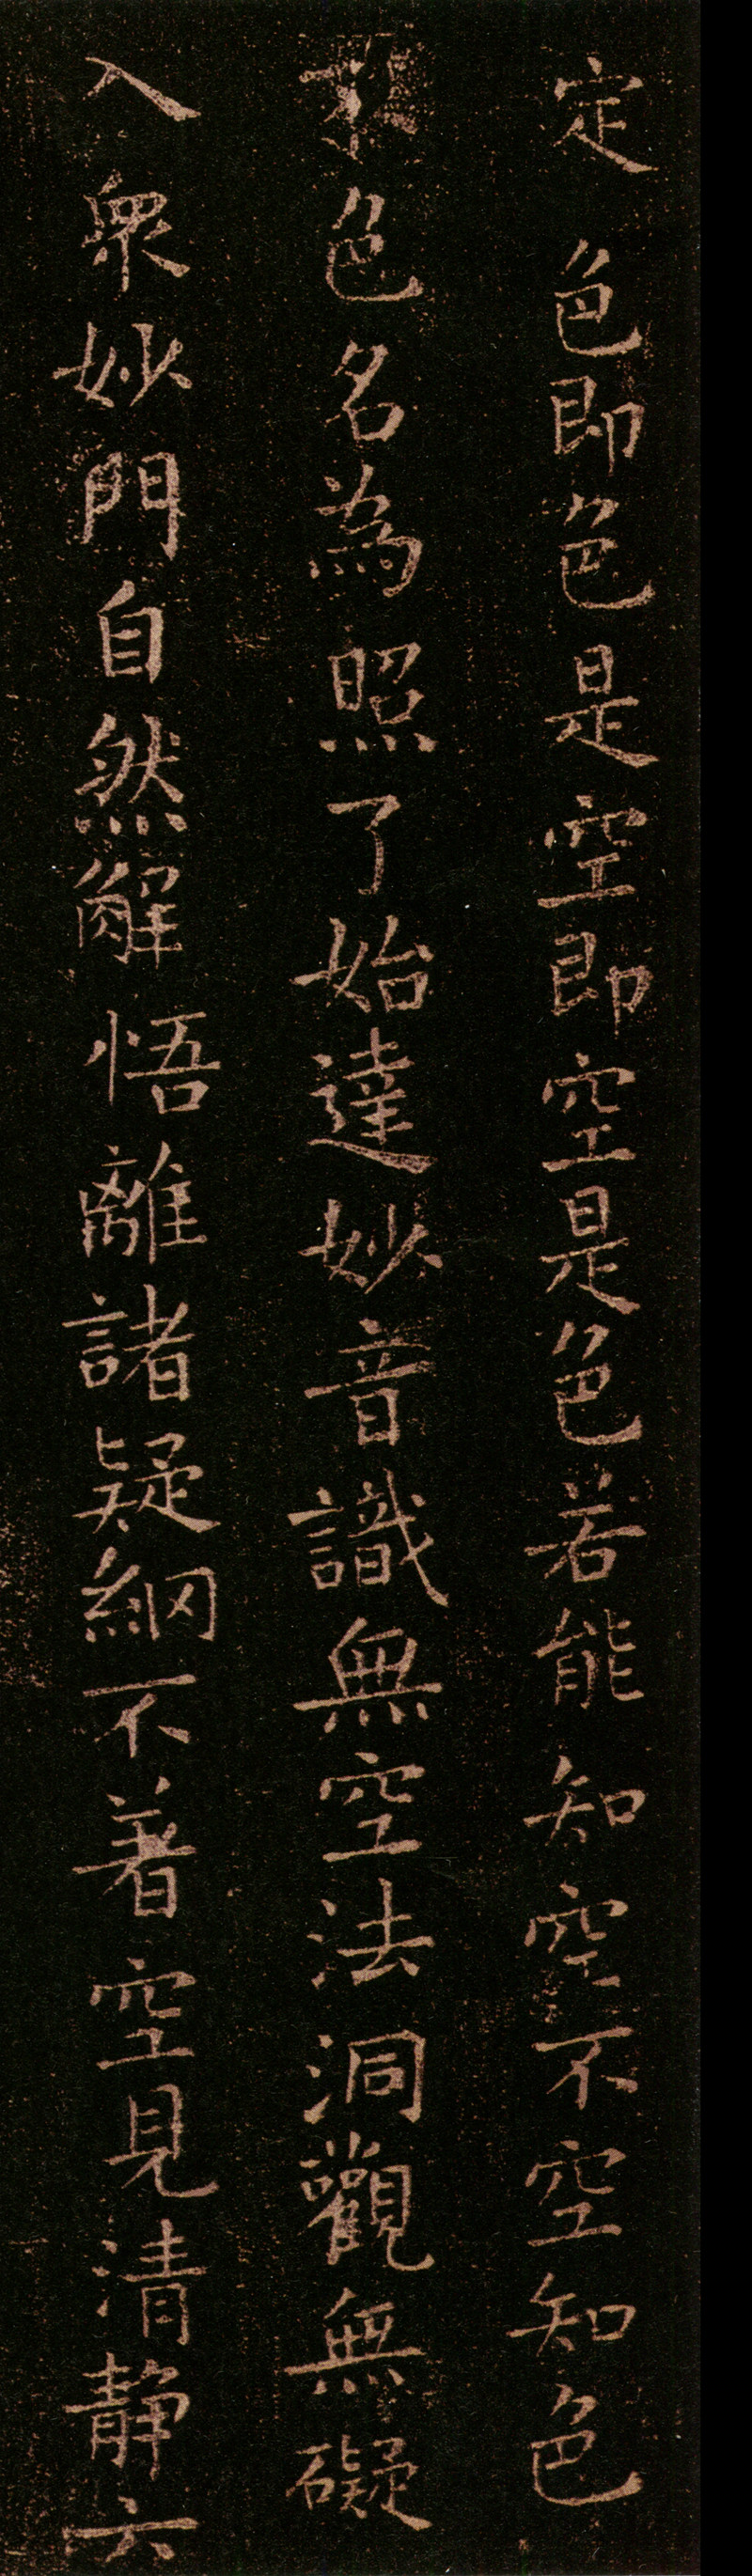 定色即色是空即空是色若能知空不空知色
不色名為照了始達妙音識無空法洞觀無礙
入衆妙門自然解悟離諸疑網不著空見清静六